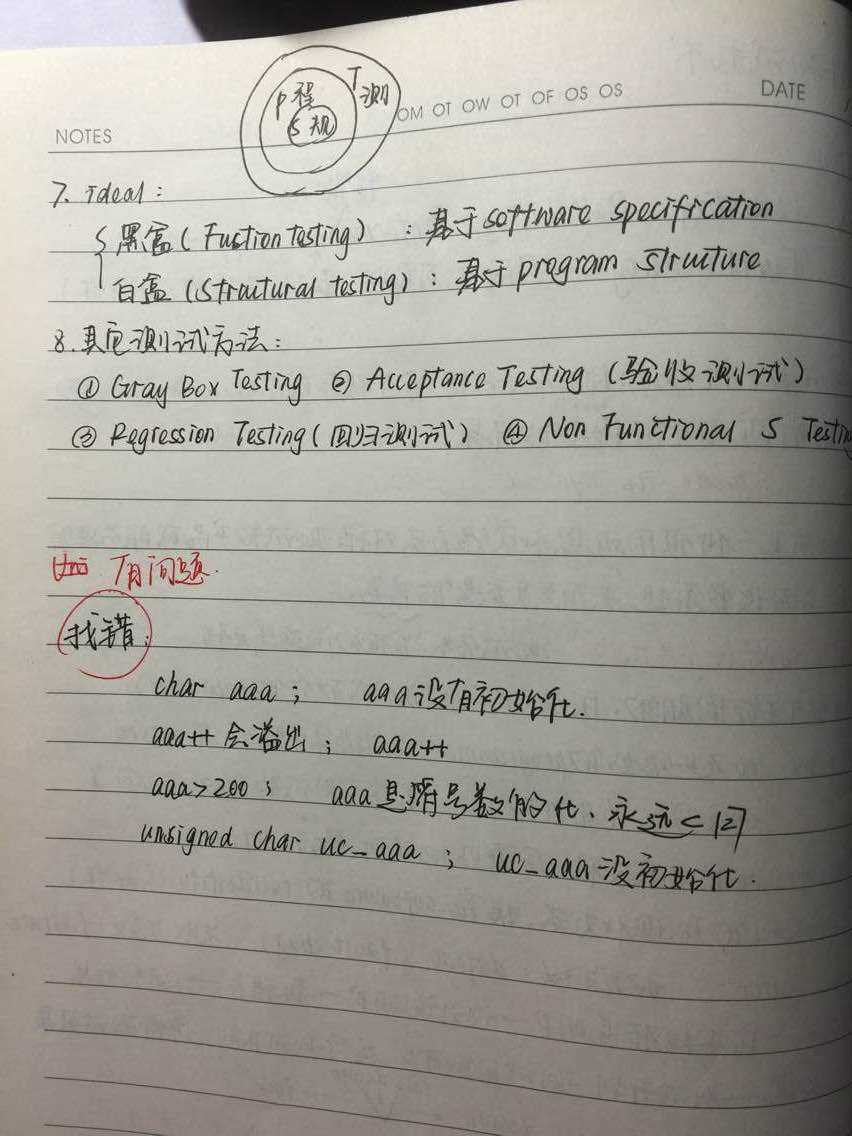 T 测
P 程
S 规
NOTES
OM OT OW OT OF OS OS
DATE
7. ideal:
黑盒(Fuction testing) : 基于software specification
白盒(Structural testing) : 基于program structure
8. 其它测试方法:
① Gray Box Testing ② Acceptance Testing (验收测试)
③ Regression Testing(回归测试) ④ Non Functional S Testin
有问题.
找错:
char aaa ; aaa没有初始化.
aaa++会溢出 ; aaa++
aaa>200 ; aaa是 号数的化、永远<127
unsigned char uc_aaa ; uc_aaa没初始化.